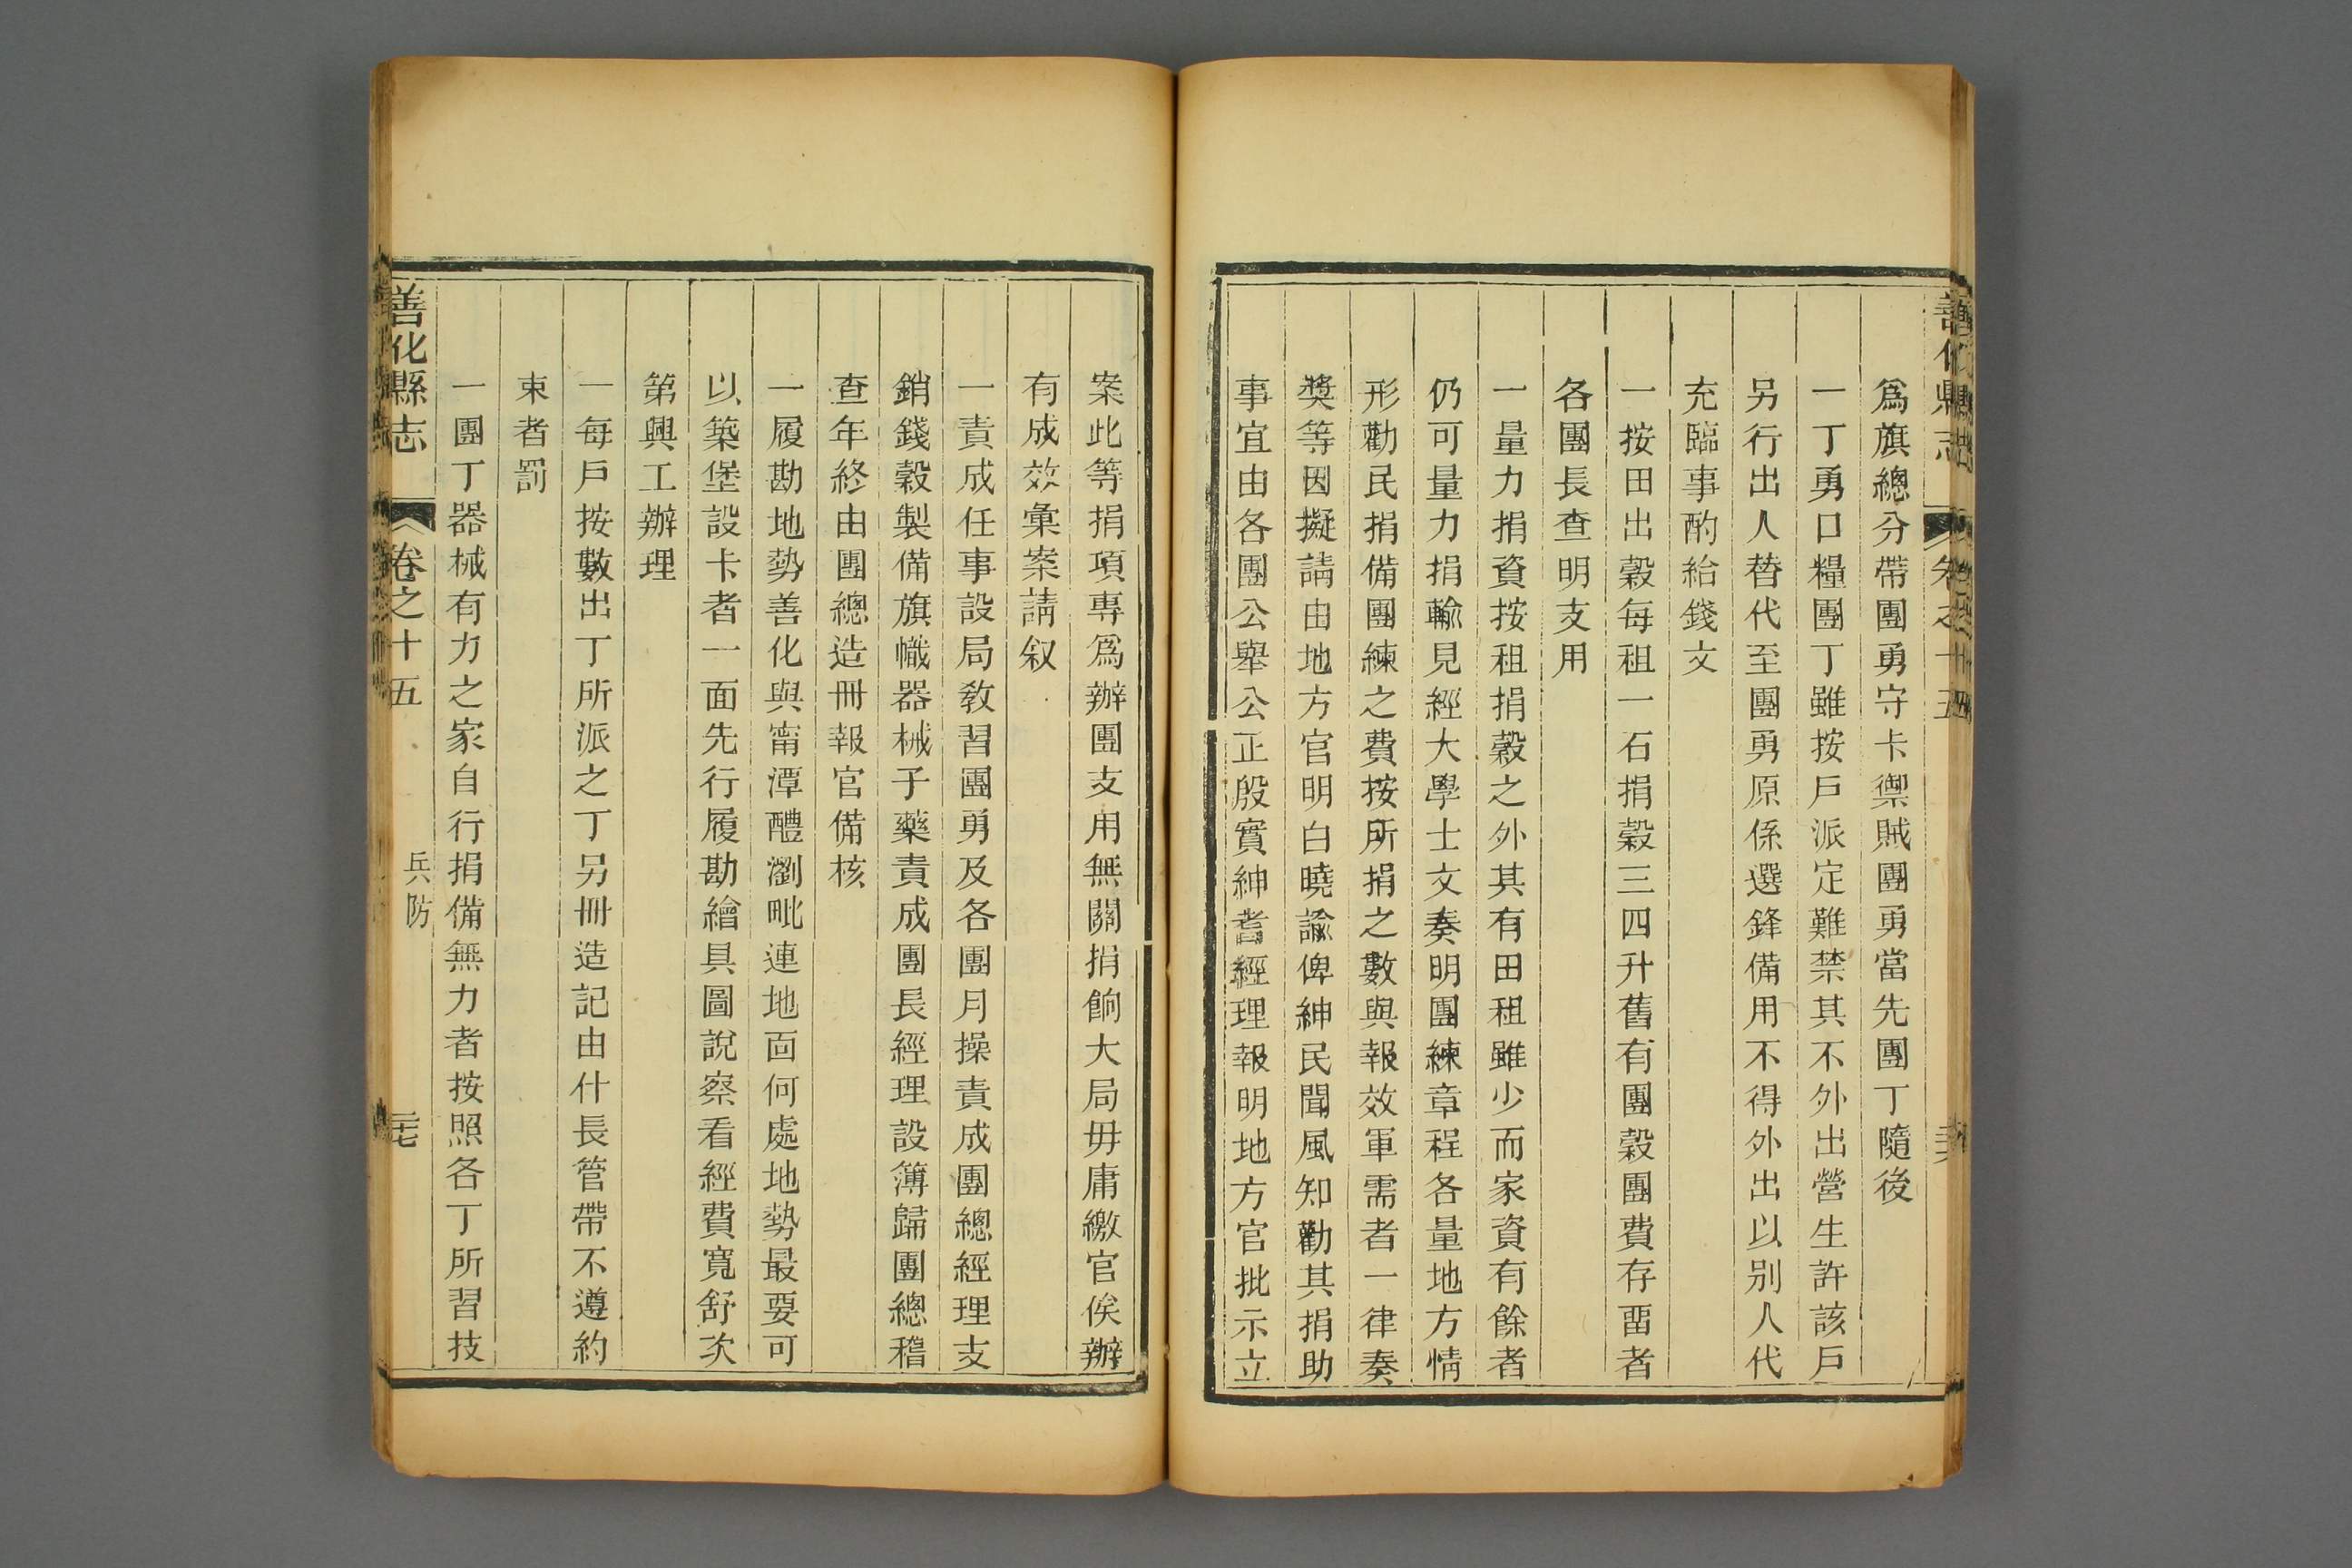 爲旗總分帶團勇守卡禦賊團勇當先團丁隨後
一丁勇口糧團丁雖按戶派定難禁其不外出營生許該戶
另行出人替代至團勇原係選鋒備用不得外出以別人代
充臨事酌給錢文
一按田出穀每租一石捐穀三四升舊有團穀團費存畱者
各團長查明支用
一量力捐資按租捐穀之外其有田租雖少而家資有餘者
仍可量力捐輸見經大學士文奏明團練章程各量地方情
形勸民捐備團練之費按所捐之數與報效軍需者一律奏
獎等因擬請由地方官明白曉諭俾紳民聞風知勸其捐助
事宜由各團公舉公正殷實紳耆經理報明地方官批示立
案此等捐項專爲辦團支用無關捐餉大局毋庸繳官俟辦
有成效彙案請叙
一責成任事設局教習團勇及各團月操責成團總經理支
銷錢穀製備旗幟器械子藥責成團長經理設簿歸團總稽
查年終由團總造冊報官備核
一履勘地勢善化與甯潭醴瀏毗連地面何處地勢最要可
以築堡設卡者一面先行履勘繪具圖說察看經費寬舒次
第興工辦理
一每戶按數出丁所派之丁另冊造記由什長管帶不遵約
束者罰
一團丁器械有力之家自行捐備無力者按照各丁所習技
善化縣志 卷之十五 兵防 二十七